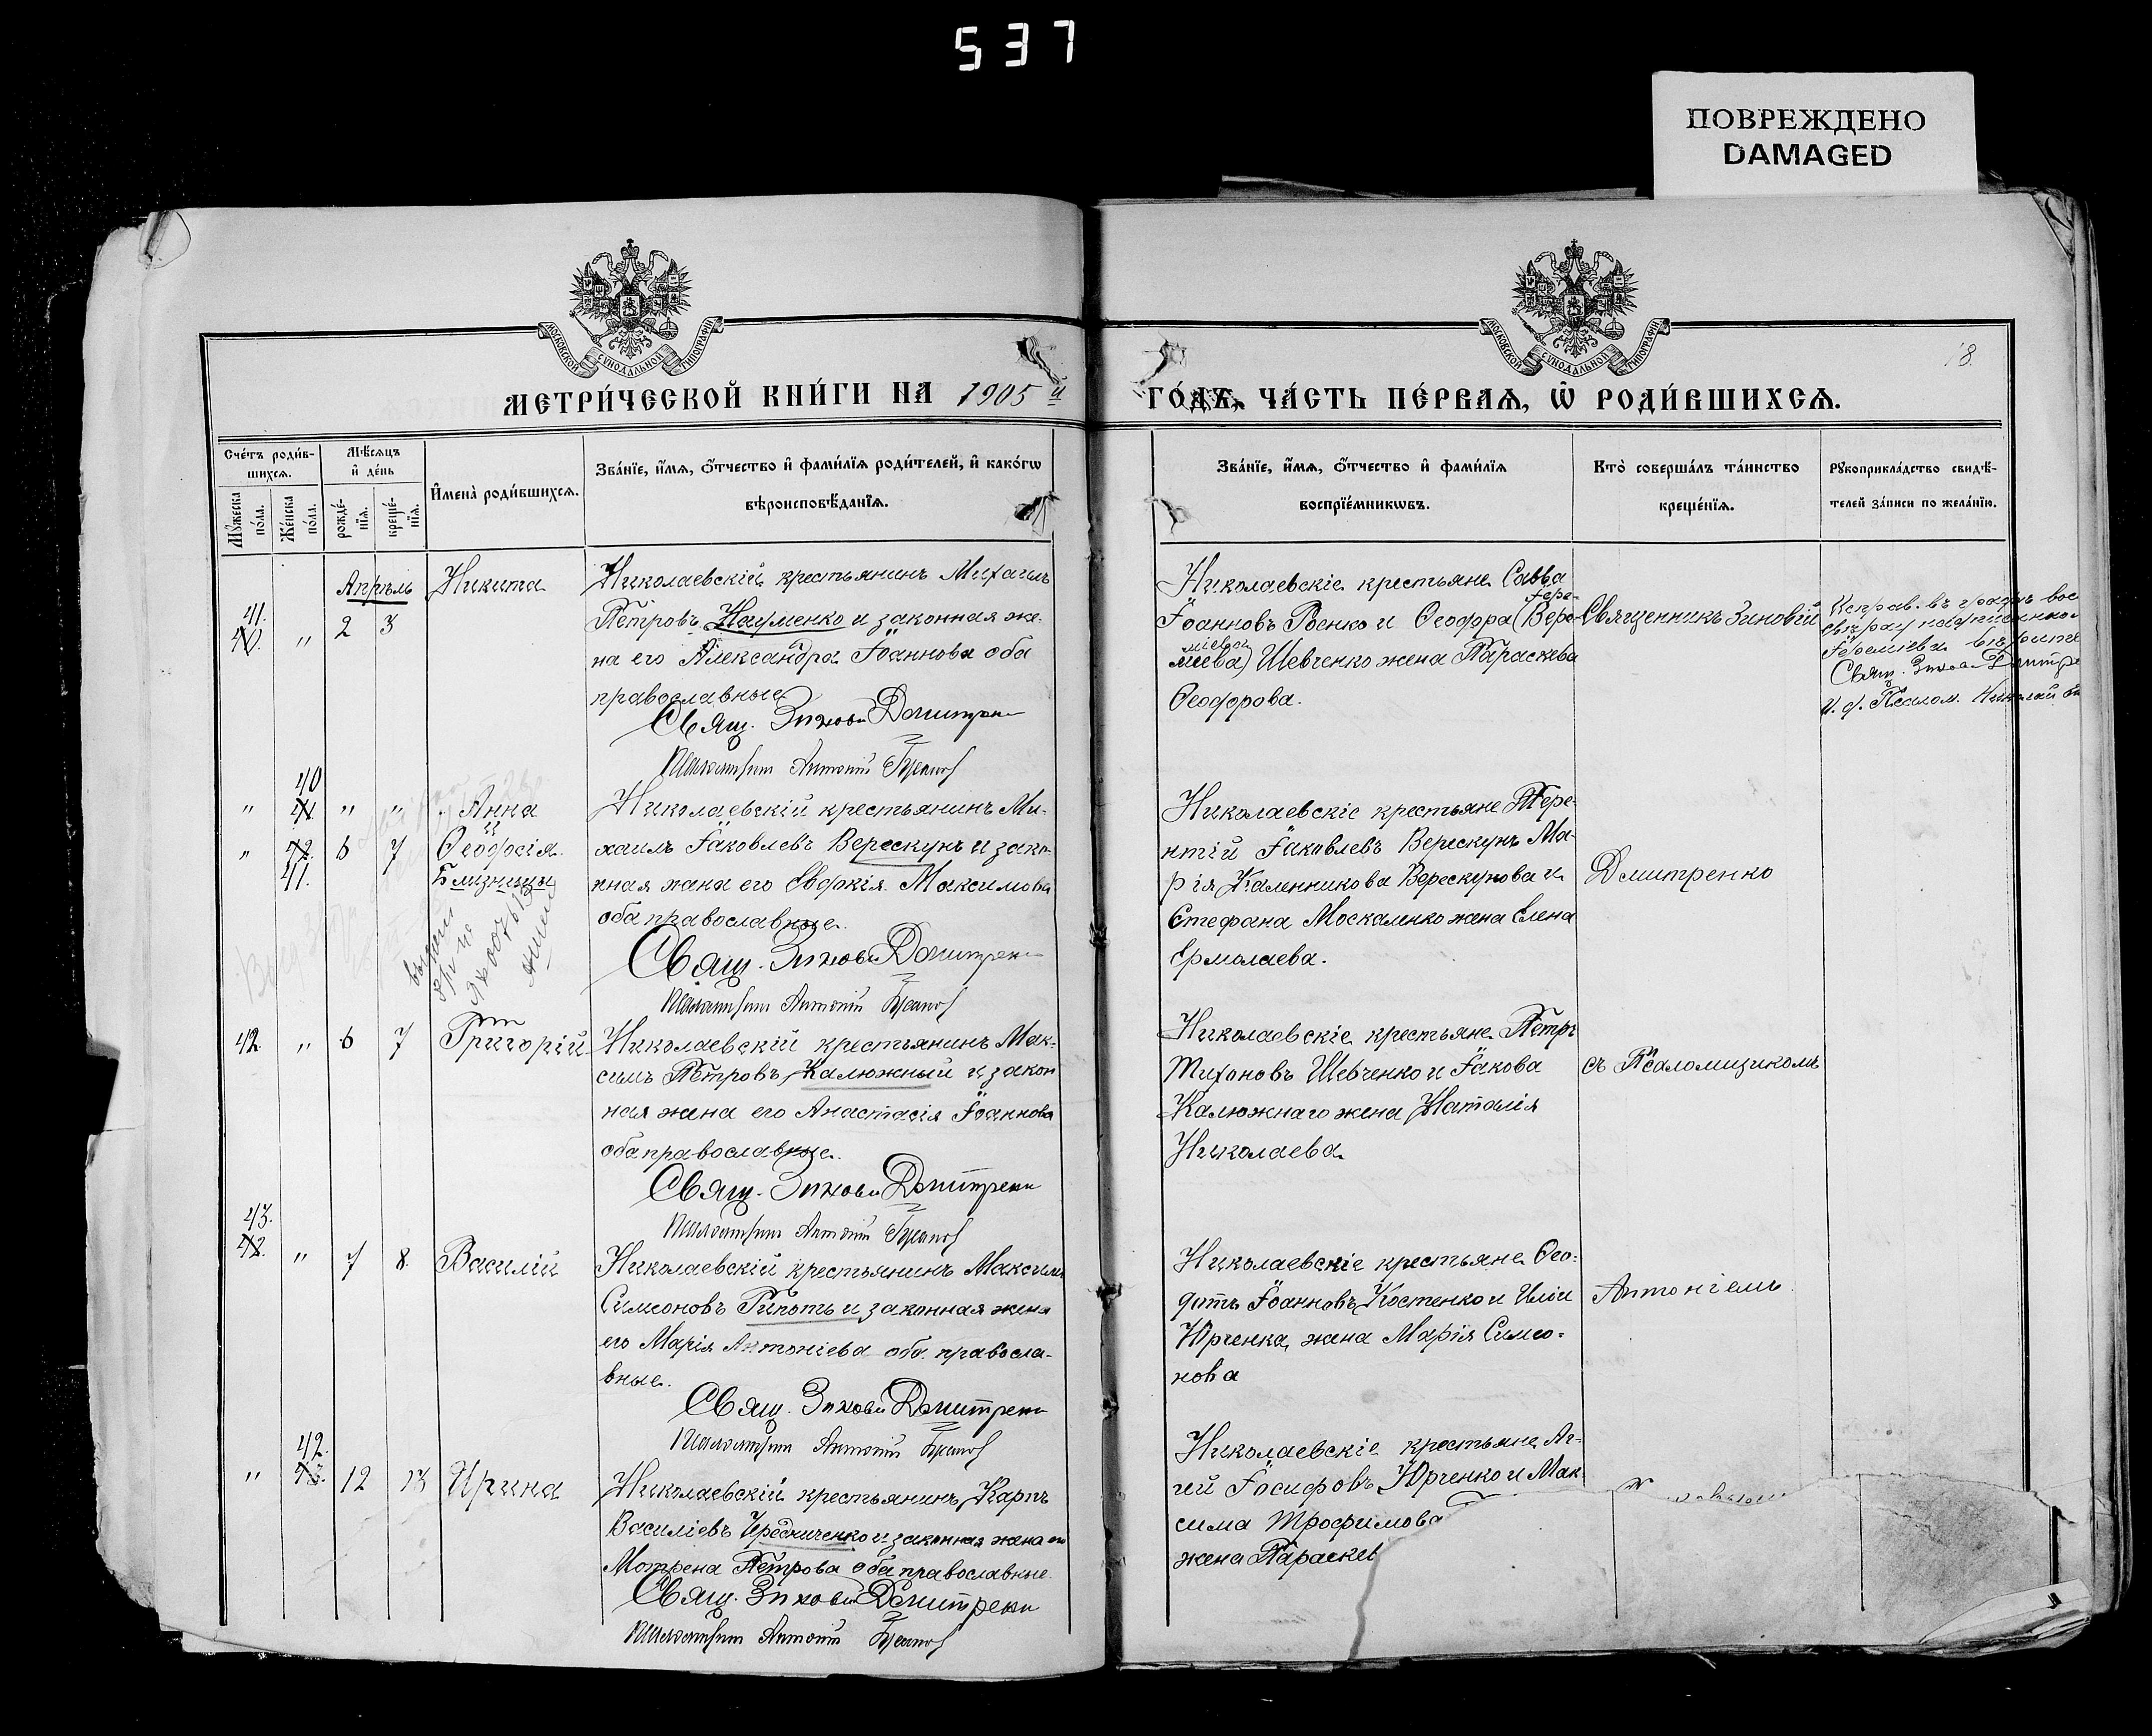 537
ПОВРЕЖДЕНО
DAMAGED
МОСКОВСКОЙ СѴНОДАЛЬНОЙ ТИПОГРАФІИ
МОСКОВСКОЙ СѴНОДАЛЬНОЙ ТИПОГРАФІИ
18.
МЕТРИ́ЧЕСКОЙ КНИ́ГИ НА 1905 й ГО́ДЪ, ЧА́СТЬ ПЕ́РВАѦ, Ѡ҆ РОДИ́ВШИХСѦ.
Сче́тъ роди́в-
шихсѧ.
Мꙋ́жеска по́ла.
Же́нска по́ла.
Мѣ́сѧцъ и҆ де́нь
рожде́-нїѧ.
креще́-нїѧ.
И҆мена̀ роди́вшихсѧ.
Зва́нїе, и҆́мѧ, ѻ҆́тчество и҆ фами́лїѧ роди́телей, и҆ како́гѡ
вѣроисповѣ́данїѧ.
Зва́нїе, и҆́мѧ, ѻ҆́тчество и҆ фами́лїѧ
воспрїе́мникѡвъ.
Кто̀ соверша́лъ та́инство
креще́нїѧ.
Рꙋкоприкла́дство свидѣ́-
телей за́писи по жела́нїю.
Апрѣль
41.
40. " 2 3
Никита
Николаевскій крестьянинъ Михаилъ
Петровъ Науменко и законная же-
на его Александра Іоаннова оба
православные
Свящ. Зинови Дмитренко
Псаломщик Антоній
Николаевскіе крестьяне Савва
Іоанновъ Роенко и Ѳеодора (Веро-
Іере-
міева
міева) Шевченко жена Параскева
Ѳеодорова.
Священникъ Зиновій
Исправ. въ графѣ вос
Іереміева вѣрите
Свящ. Зинови Дмитре
И. д. Псалом. Николай
40
" 41 " " Анна
и
" 42. 6 7 Ѳеодосія
41.
Близнецы
Николаевскій крестьянинъ Ми-
хаилъ Іаковлевъ Верескунъ и зако-
нная жена его Евдокія Максимова
оба православные.
Свящ. Зинови Дмитренко
Псаломщик Антоній
Николаевскіе крестьяне Тере-
нтій Іаковлевъ Верескунъ Ма-
рія Каленникова Верескунова и
Стефана Москаленко жена Елена
Ермолаева.
Дмитренко
42. " 6 7 Григорій
Николаевскій крестьянинъ Мак-
симъ Петровъ Калюжный и закон
ная жена его Анастасія Іоаннова
оба православные.
Свящ. Зинови Дмитренко
Псаломщик Антоній
Николаевскіе крестьяне Петръ
Тихоновъ Шевченко и Іакова
Калюжнаго жена Наталія
Николаева
съ Псаломщикомъ
43.
42. " 7 8. Василій
Николаевскій крестьянинъ Максимъ
Симеоновъ Рипоть и законная жена
его Марія Антоніева оба правосла-
вные.
Свящ. Зинови Дмитренко
Псаломщик Антоній
Николаевскіе крестьяне Ѳео-
дотъ Іоанновъ Костенко и Иліи
Юрченка жена Марія Симео-
нова
Антоніемъ
42.
" 43. 12 13 Ирина
Николаевскій крестьянинъ Карпъ
Василіевъ Чередниченко и законная жена его
Мотрена Петрова оба православные.
Свящ. Зинови Дмитренко
Псаломщик Антоній
Николаевскіе крестьяне Аг-
гей Іосифовъ Юрченко и Мак-
сима Трофимова
жена Параскев